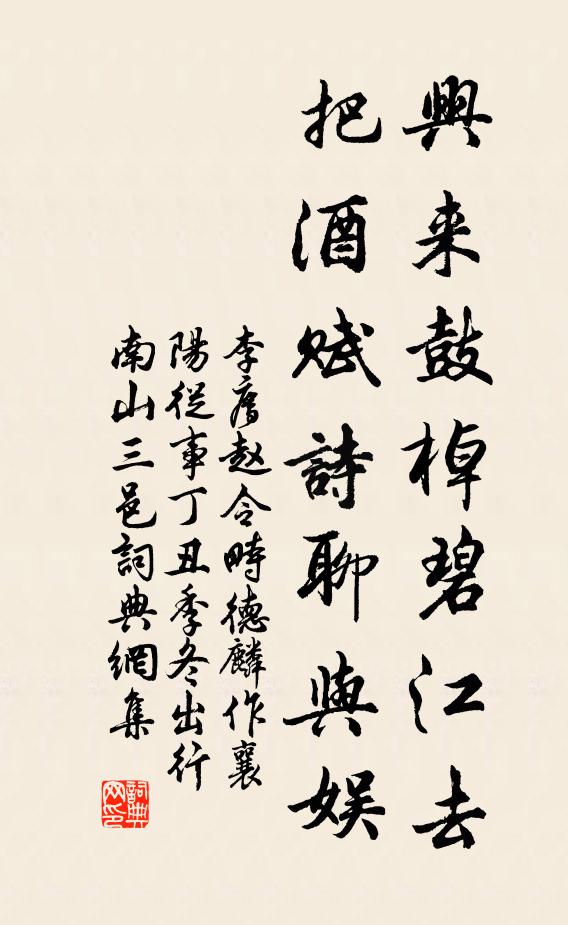 興来鼓棹碧江去
把酒賦詩聊與娛
李廌赵令畤德麟作襄
陽從事丁丑季冬出行
南山三邑詞典網集
詞典网印